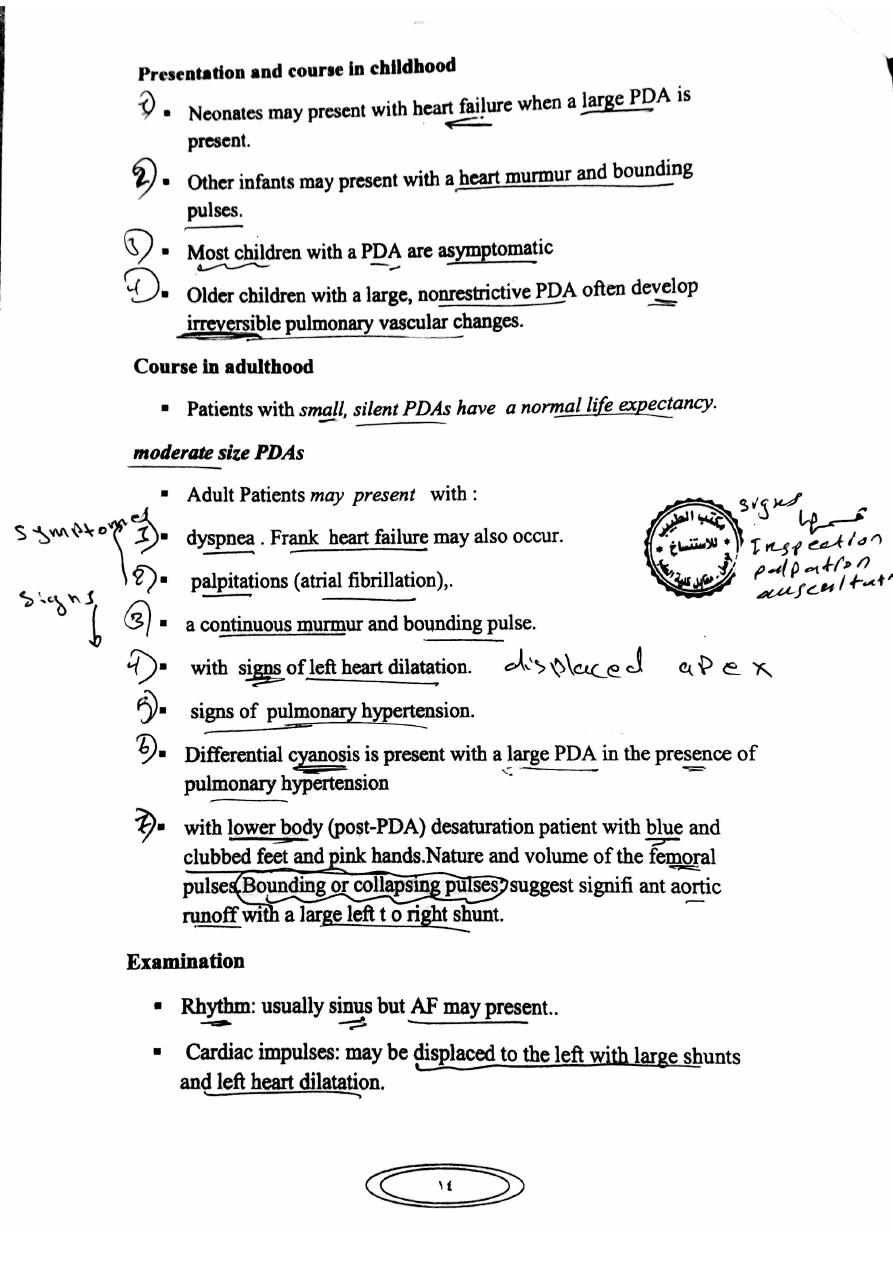 Presentation and course in childhood
1) ▪ Neonates may present with heart failure when a large PDA is
present.
2) ▪ Other infants may present with a heart murmur and bounding
pulses.
3) ▪ Most children with a PDA are asymptomatic
4) ▪ Older children with a large, nonrestrictive PDA often develop
irreversible pulmonary vascular changes.
Course in adulthood
▪ Patients with small, silent PDAs have a normal life expectancy.
moderate size PDAs
▪ Adult Patients may present with :
Symptomes
1) ▪ dyspnea . Frank heart failure may also occur.
2) ▪ palpitations (atrial fibrillation),.
Signs
3) ▪ a continuous murmur and bounding pulse.
4) ▪ with signs of left heart dilatation. displaced apex
5) ▪ signs of pulmonary hypertension.
6) ▪ Differential cyanosis is present with a large PDA in the presence of
pulmonary hypertension
7) ▪ with lower body (post-PDA) desaturation patient with blue and
clubbed feet and pink hands.Nature and volume of the femoral
pulses(Bounding or collapsing pulses) suggest signifi ant aortic
runoff with a large left t o right shunt.
مكتب الطبيب
للاستنساخ
signs
Inspection
palpation
auscultat
Examination
▪ Rhythm: usually sinus but AF may present..
▪ Cardiac impulses: may be displaced to the left with large shunts
and left heart dilatation.
١٤